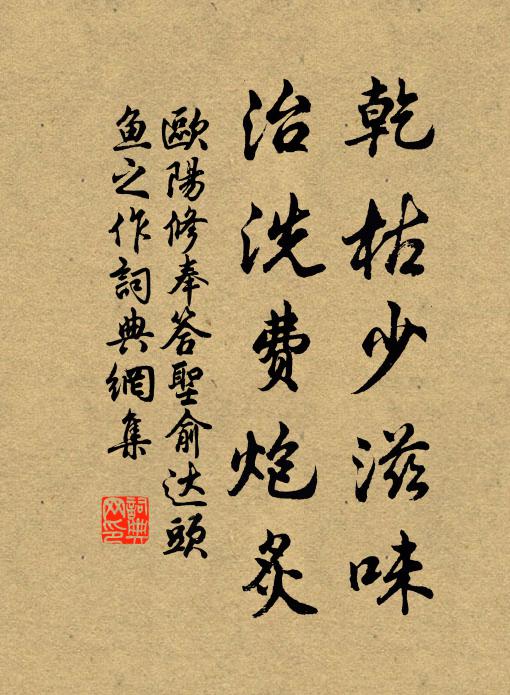 乾枯少滋味
治洗費炮炙
歐陽修奉答聖俞达頭
魚之作詞典網集
詞典
网印